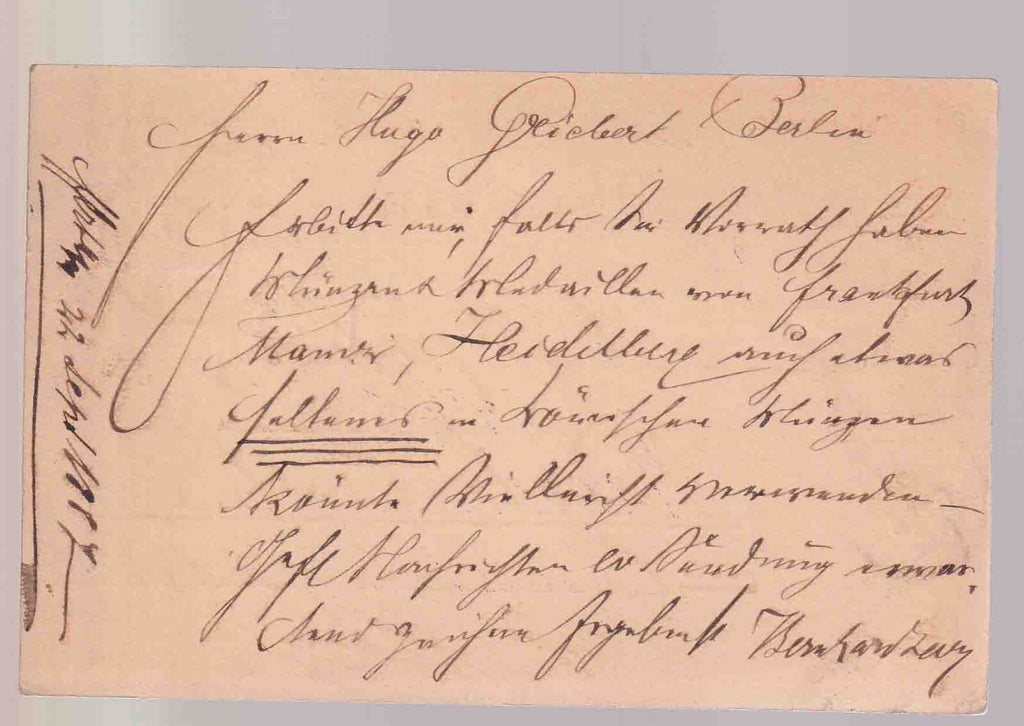 Herrn Hugo Geichert Berlin
Erbitte mir, falls Sie Vorrath haben
Münzen & Medaillen von Frankfurt
Mainz, Heidelberg auch etwas
seltenes in römischen Münzen
könnte Vielleicht verwenden –
Gefl Nachrichten ev Sendung erwar-
tend zeichne Ergebenst Bernhard
22 Sept 1887